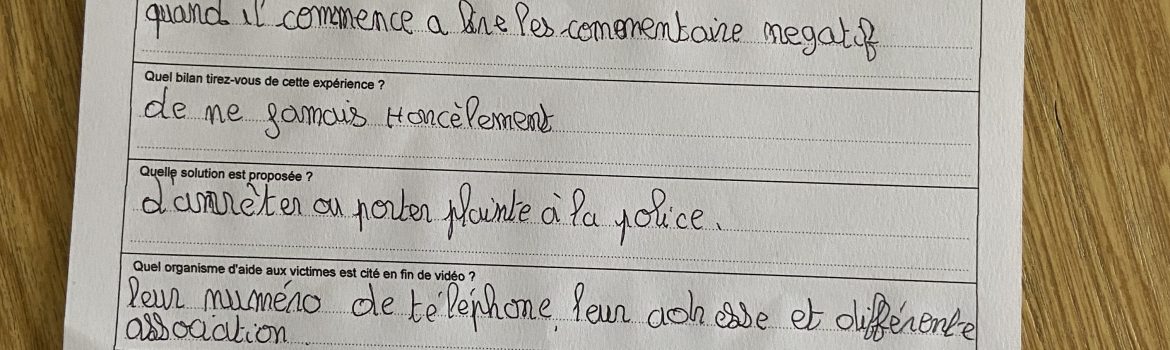 quand il commence a lire les commentaire negatif
Quel bilan tirez-vous de cette expérience ?
de ne jamais Harcèlement
Quelle solution est proposée ?
d'arrêter ou porter plainte à la police.
Quel organisme d'aide aux victimes est cité en fin de vidéo ?
leur numéro de téléphone, leur adresse et différente
association